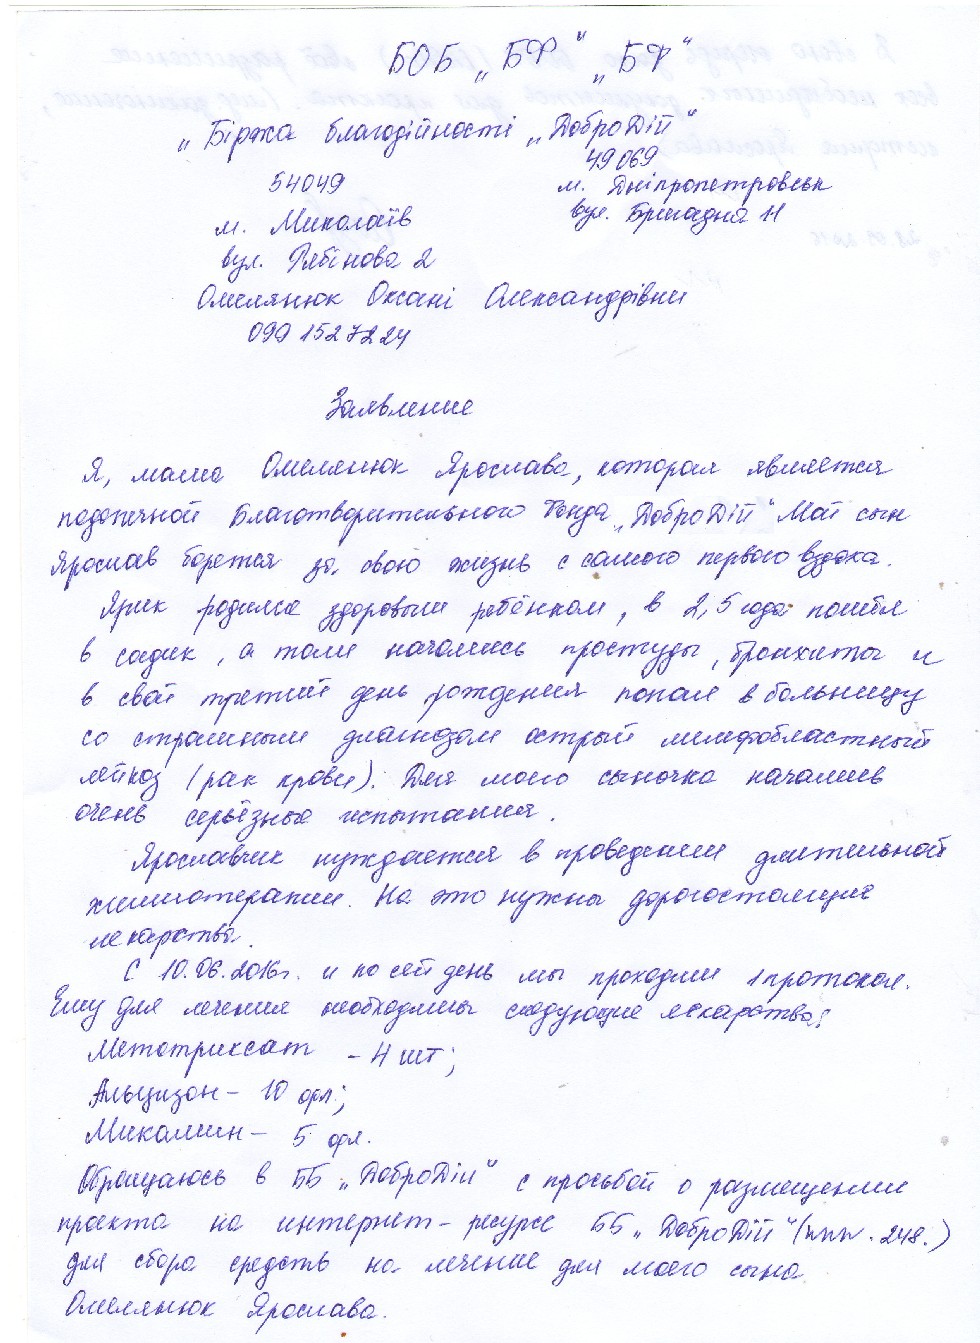 БОБ „БФ“ „БФ“
„Біржа благодійності „ДоброДій“
49069
54049
м. Дніпропетровськ
м. Миколаїв
вул. Бригадна 11
вул. Рябінова 2
Омелянюк Оксані Олександрівни
099 1527224
Заявление
Я, мама Омелянюк Ярослава, которая является
подопечной Благотворительного Фонда „ДоброДій“ Мой сын
Ярослав борется за свою жизнь с самого первого вздоха.
Ярик родился здоровым ребёнком, в 2,5 года пошёл
в садик, а там начались простуды, бронхиты и
в свой третий день рождения попал в больницу
со страшным диагнозом острый лимфобластный
лейкоз (рак крови). Для моего сыночка начались
очень серьёзные испытания.
Ярославчик нуждается в проведении длительной
химиотерапии. На это нужны дорогостоящие
лекарства.
С 10.06.2016г. и по сей день мы проходим 1 протокол.
Ему для лечения необходимы следующие лекарства:
Метотриксат - 4 шт;
Альцизон - 10 фл;
Микамин - 5 фл.
Обращаюсь в ББ „ДоброДій“ с просьбой о размещении
проекта на интернет-ресурсе ББ „ДоброДій“ (www.248.)
для сбора средств на лечение для моего сына
Омелянюк Ярослава.